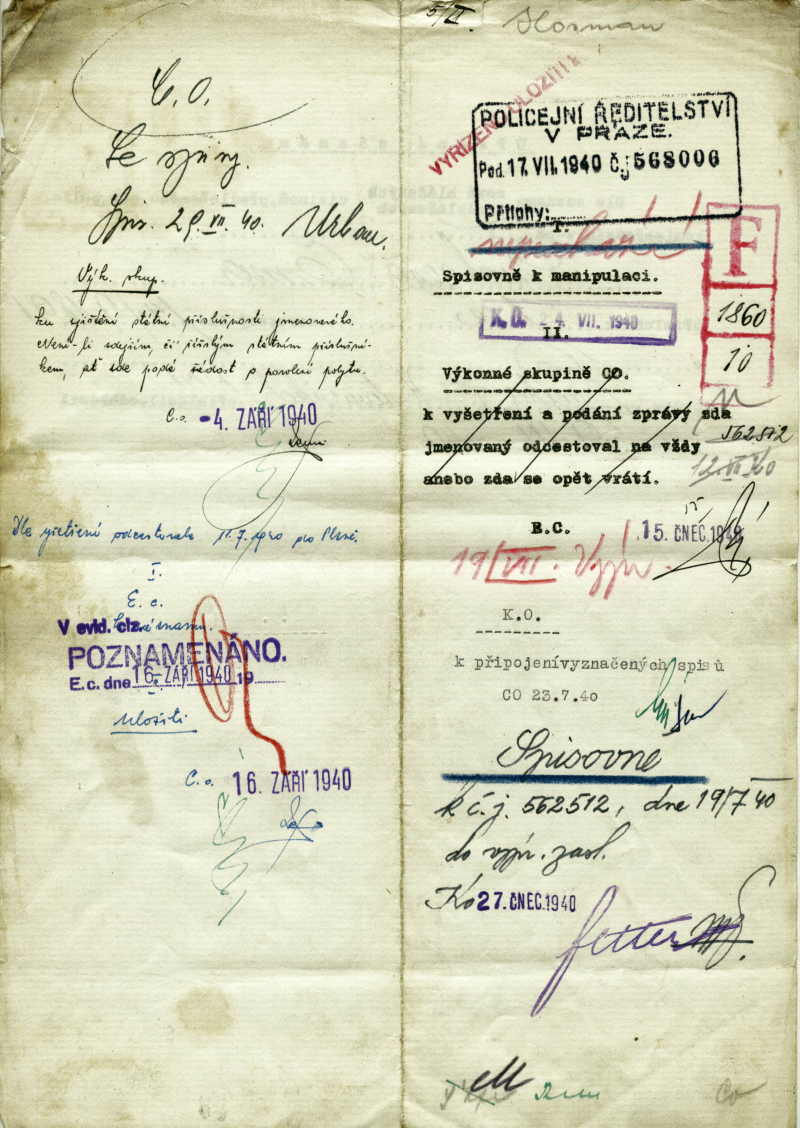 5/II
C.O.
Se spisy.
Spis. 29. VII. 40. Urban.
Výk. skup.
ku zjištění státní příslušnosti jmenovaného.
Není-li zdejším, či říšským státním příslušní-
kem, ať zde podá žádost o povolení pobytu.
C.o. -4. ZÁŘÍ 1940
Dle zjištění odcestovala 11.7.1940 do
I.
E. c.
V evid. ciz.
POZNAMENÁNO.
E. c. dne 16. ZÁŘÍ 1940 19
Uložiti
C. o. 16. ZÁŘÍ 1940
VYŘÍZENO ULOŽITI!
POLICEJNÍ ŘEDITELSTVÍ
V PRAZE.
Pod. 17. VII. 1940 Čj 568006
Přílohy:
I.
Spisovně k manipulaci.
F
1860
10
K. O. 24. VII. 1940
II.
Výkonné skupině CO.
k vyšetření a podání zprávy zda
jmenovaný odcestoval na vždy
anebo zda se opět vrátí.
562512
12. VII 40
E.C. 15. ČNEC. 1940
19/VII. Vypr.
K.O.
k připojenívyznačených spisů
CO 23.7.4o
Spisovně
k č.j. 562512, dne 19/7 40
do vypr. zasl.
Ko 27. ČNEC. 1940
Co